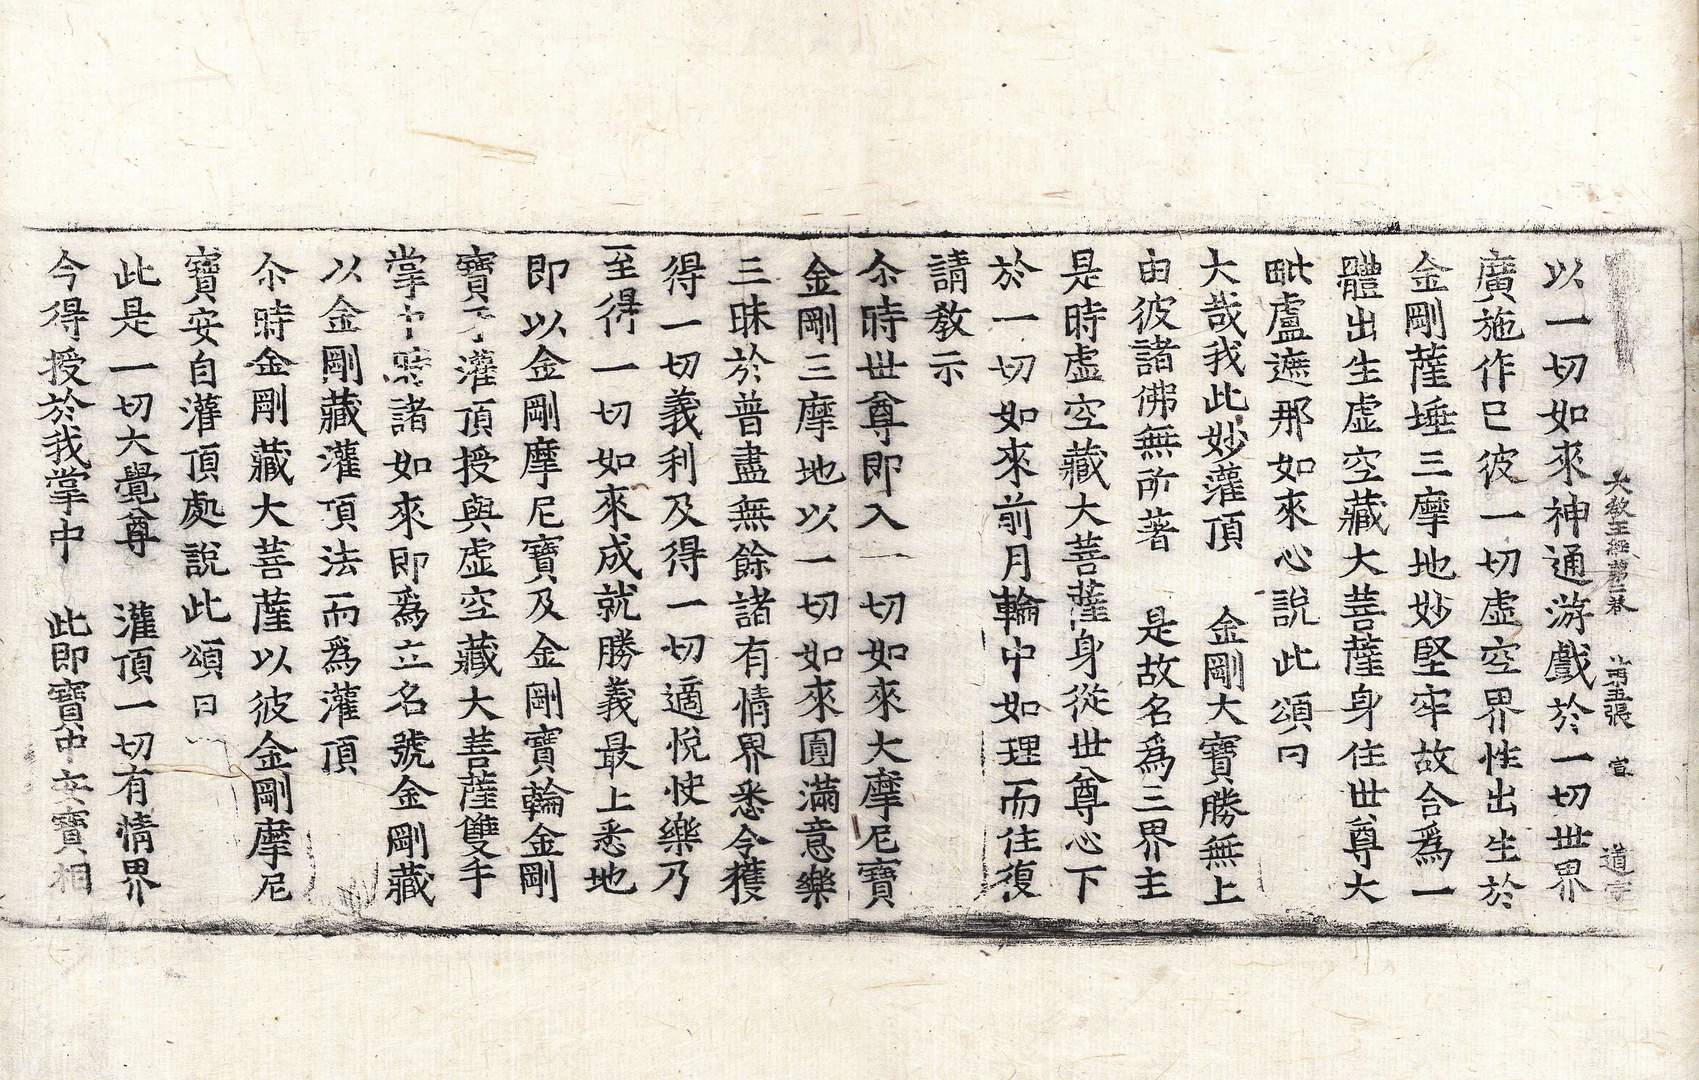 大教王經第二卷　第五張　宣　道字
以一切如來神通游戲於一切世界
廣施作已彼一切虛空界性出生於
金剛薩埵三摩地妙堅牢故合爲一
體出生虛空藏大菩薩身住世尊大
毗盧遮那如來心說此頌曰
大哉我此妙灌頂　金剛大寶勝無上
由彼諸佛無所著　是故名為三界主
是時虛空藏大菩薩身從世尊心下
於一切如來前月輪中如理而住復
請教示
尒時世尊即入一切如來大摩尼寶
金剛三摩地以一切如來圓滿意樂
三昧於普盡無餘諸有情界悉令獲
得一切義利及得一切適悅快樂乃
至得一切如來成就勝義最上悉地
即以金剛摩尼寶及金剛寶輪金剛
寶子灌頂授與虛空藏大菩薩雙手
掌中時諸如來即爲立名號金剛藏
以金剛藏灌頂法而爲灌頂
尒時金剛藏大菩薩以彼金剛摩尼
寶安自灌頂處說此頌曰
此是一切大覺尊　灌頂一切有情界
今得授於我掌中　此即寶中安寶相